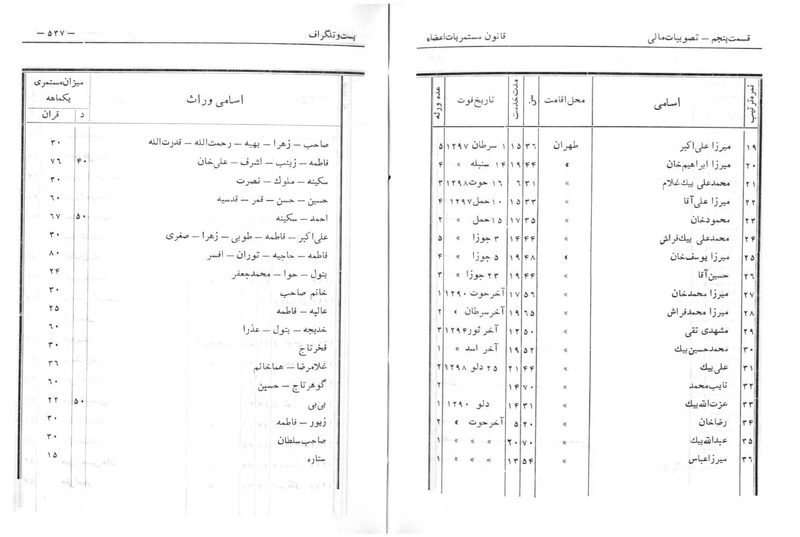 قسمت پنجم – تصویبات مالی
قانون مستمریات اعضاء
نمره ترتیب
اسامی
محل اقامت
تاریخ فوت
مدت خدمت
سن
عده ورثه
۱۹ میرزا علی اکبر طهران ۳۶ ۱۵ ۱ سرطان ۱۲۹۷ ۵
۲۰ میرزا ابراهیم خان » ۴۴ ۱۹ ۱۴ سنبله » ۴
۲۱ محمدعلی بیك غلام » ۳۱ ۶ ۱۶ حوت ۱۲۹۸ ۳
۲۲ میرزا علی آقا » ۳۳ ۱۵ ۱۰ حمل ۱۲۹۷ ۴
۲۳ محمودخان » ۳۵ ۱۷ ۱۵ حمل » ۲
۲۴ محمدعلی بیك فراش » ۴۴ ۱۴ ۳ جوزا » ۵
۲۵ میرزا یوسف خان » ۴۸ ۱۹ ۵ جوزا » ۴
۲۶ حسین آقا » ۴۴ ۱۹ ۲۳ جوزا » ۳
۲۷ میرزا محمدخان » ۵۶ ۱۷ آخر حوت ۱۲۹۰ ۱
۲۸ میرزا محمد فراش » ۶۵ ۱۹ آخر سرطان » ۲
۲۹ مشهدی تقی » ۵۰ ۱۳ آخر ثور ۱۲۹۴ ۳
۳۰ محمدحسین بیك » ۵۲ ۱۹ آخر اسد » ۱
۳۱ علی بیك » ۴۴ ۲۱ ۲۵ دلو ۱۲۹۸ ۲
۳۲ نایب محمد » ۷۰ ۱۴ ۲
۳۳ عزت الله بیك » ۳۱ ۱۴ دلو ۱۲۹۰ ۱
۳۴ رضاخان » ۲۰ ۵ آخر حوت » ۲
۳۵ عبدالله بیك » ۷۰ ۲۰ » » » ۱
۳۶ میرزا عباس » ۵۴ ۱۳ » » » ۱
پست و تلگراف
– ۵۳۷ –
اسامی وراث
میزان مستمری
یکماهه
د
قران
صاحب – زهرا – بهیه – رحمت الله – قدرت الله ۳۰
فاطمه – زینب – اشرف – علی خان ۴۰ ۷۶
سکینه – ملوك – نصرت ۳۰
حسین – حسن – قمر – قدسیه ۶۰
احمد – سکینه ۵۰ ۶۷
علی اکبر – فاطمه – طوبی – زهرا – صغری ۳۰
فاطمه – حاجیه – توران – افسر ۸۰
بتول – حوا – محمدجعفر ۲۴
خانم صاحب ۳۰
عالیه – فاطمه ۲۵
خدیجه – بتول – عذرا ۶۰
فخر تاج ۳۰
غلامرضا – هما خانم ۳۶
گوهر تاج – حسین ۶۰
بی بی ۵۰ ۲۲
زیور – فاطمه ۳۰
صاحب سلطان ۳۰
ستاره ۱۵